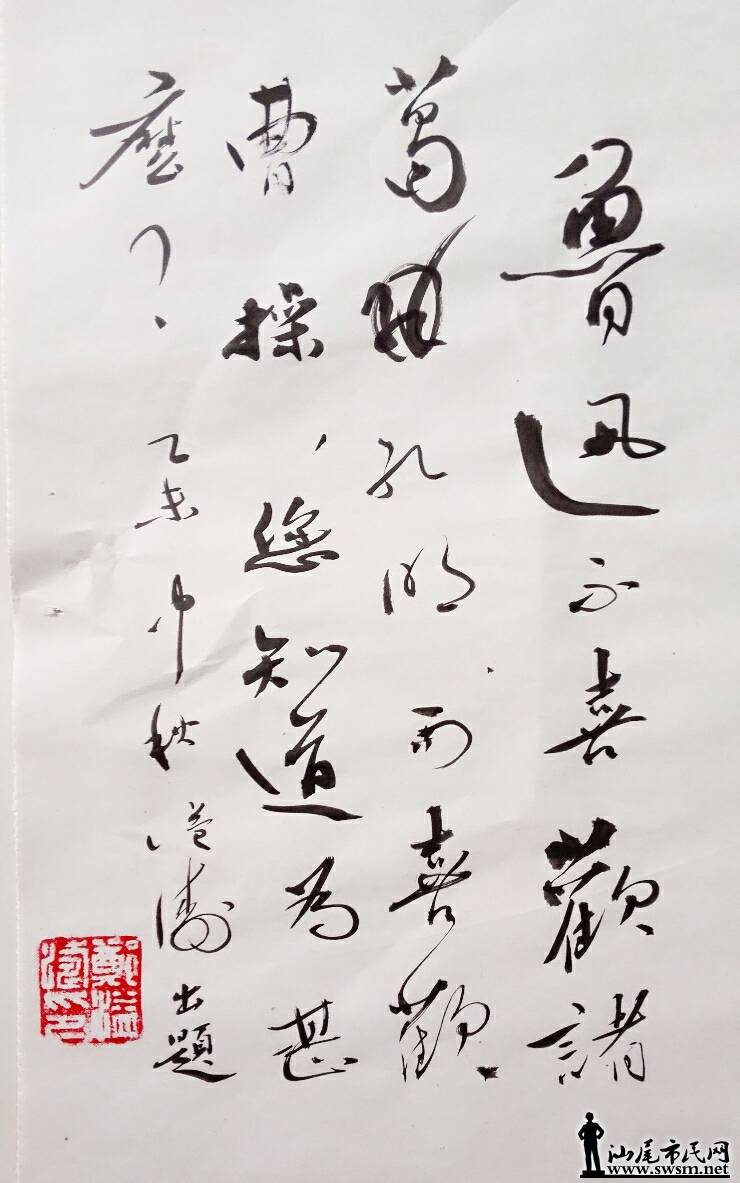 魯迅不喜歡諸
葛孔明而喜歡
曹操，您知道為甚
麼？
乙未中秋溢濤出題
鄭溢濤印
汕尾市民网
www.swsm.net